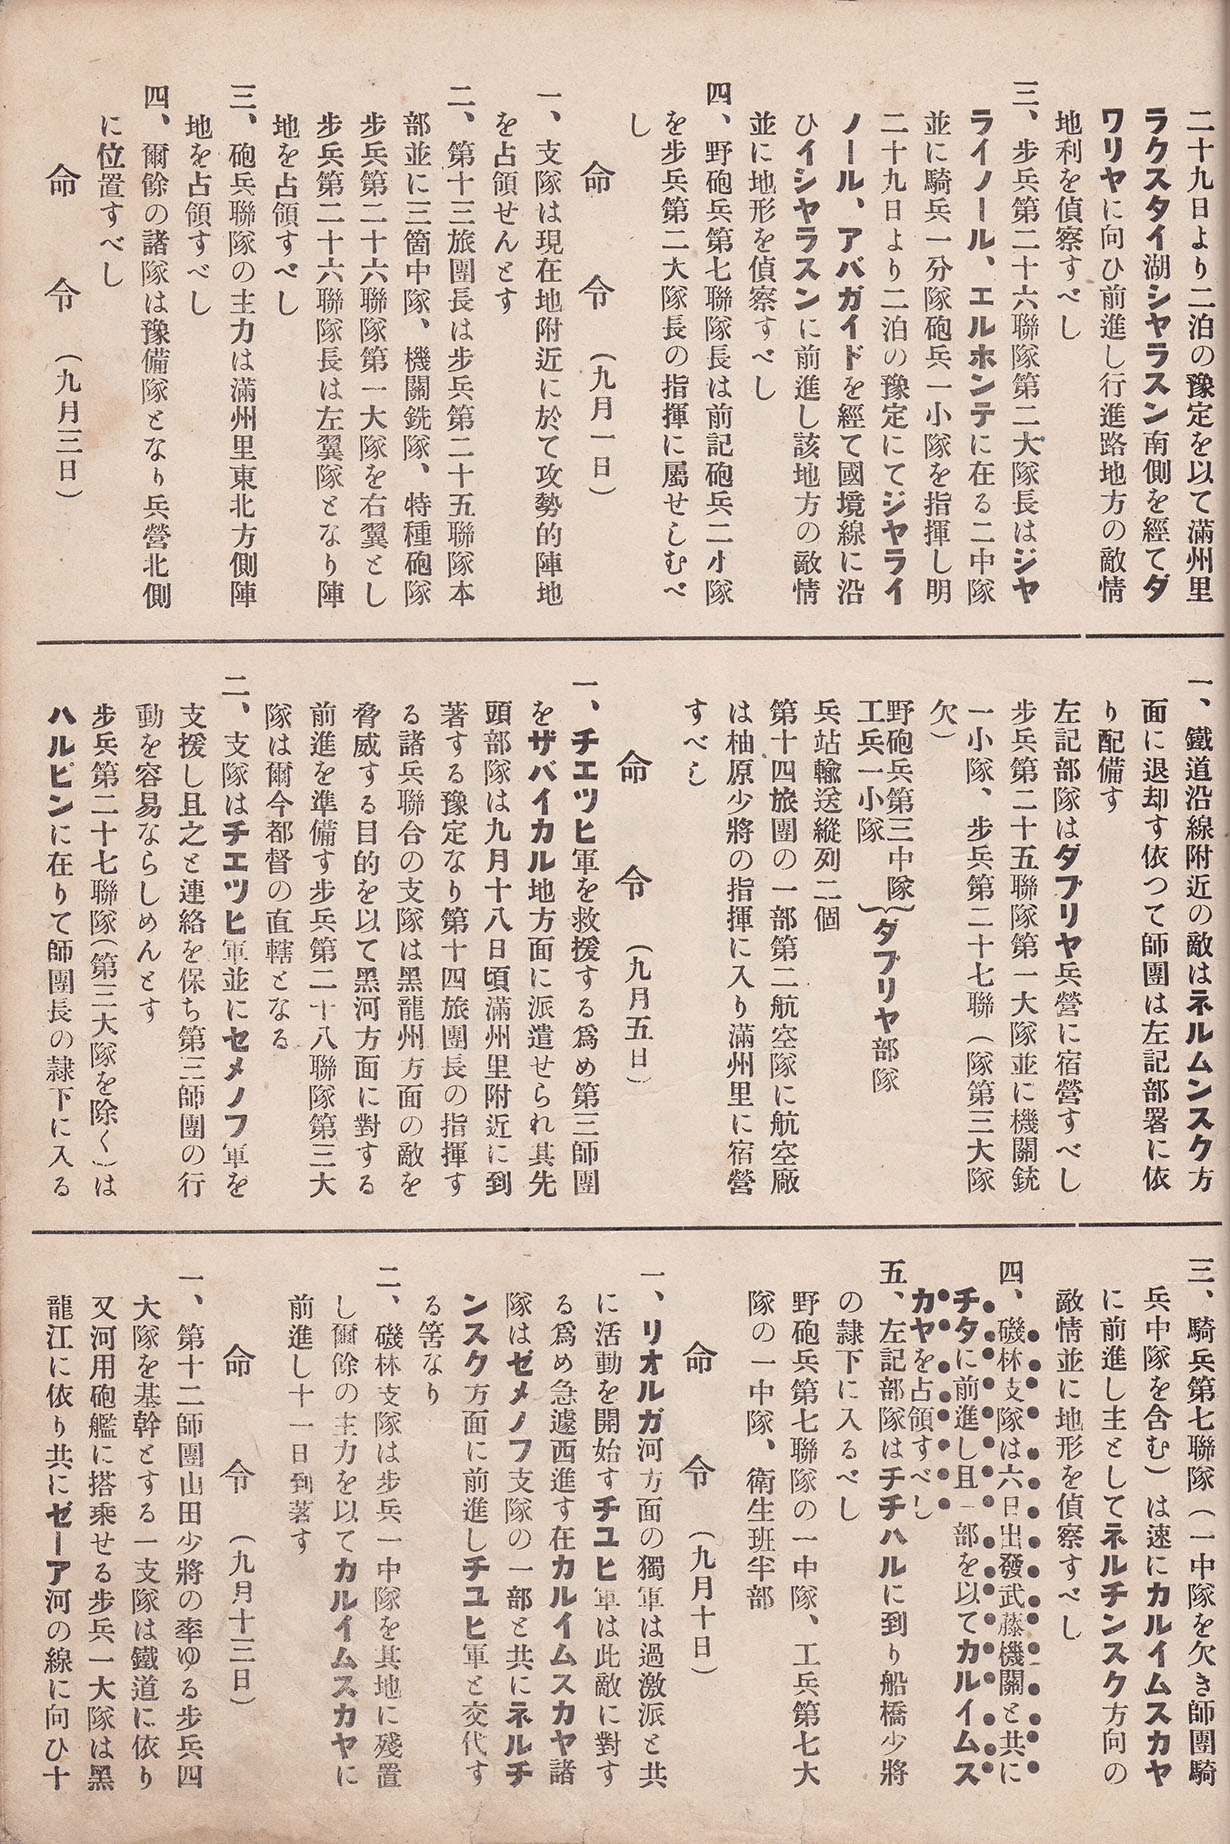 二十九日より二泊の豫定を以て滿州里
ラクスタイ湖シヤラスン南側を經てダ
ワリヤに向ひ前進し行進路地方の敵情
地利を偵察すべし
三、步兵第二十六聯隊第二大隊長はジヤ
ライノール、エルホンテに在る二中隊
並に騎兵一分隊砲兵一小隊を指揮し明
二十九日より二泊の豫定にてジヤライ
ノール、アバガイドを經て國境線に沿
ひイシヤラスンに前進し該地方の敵情
並に地形を偵察すべし
四、野砲兵第七聯隊長は前記砲兵二小隊
を步兵第二大隊長の指揮に屬せしむべ
し
命令（九月一日）
一、支隊は現在地附近に於て攻勢的陣地
を占領せんとす
二、第十三旅團長は步兵第二十五聯隊本
部並に三箇中隊、機關銃隊、特種砲隊
步兵第二十六聯隊第一大隊を右翼とし
步兵第二十六聯隊長は左翼隊となり陣
地を占領すべし
三、砲兵聯隊の主力は滿州里東北方側陣
地を占領すべし
四、爾餘の諸隊は豫備隊となり兵營北側
に位置すべし
命令（九月三日）
一、鐵道沿線附近の敵はネルムンスク方
面に退却す依つて師團は左記部署に依
り配備す
左記部隊はダブリヤ兵營に宿營すべし
步兵第二十五聯隊第一大隊並に機關銃
一小隊、步兵第二十七聯（隊第三大隊
欠）
野砲兵第三中隊
工兵一小隊
｝ダブリヤ部隊
兵站輸送縱列二個
第十四旅團の一部第二航空隊に航空廠
は柚原少將の指揮に入り滿州里に宿營
すべし
命令（九月五日）
一、チエツヒ軍を救援する爲め第三師團
をザバイカル地方面に派遣せられ其先
頭部隊は九月十八日頃滿州里附近に到
著する豫定なり第十四旅團長の指揮す
る諸兵聯合の支隊は黑龍州方面の敵を
脅威する目的を以て黑河方面に對する
前進を準備す步兵第二十八聯隊第三大
隊は爾今都督の直轄となる
二、支隊はチエツヒ軍並にセメノフ軍を
支援し且之と連絡を保ち第三師團の行
動を容易ならしめんとす
步兵第二十七聯隊（第三大隊を除く）は
ハルピンに在りて師團長の隸下に入る
三、騎兵第七聯隊（一中隊を欠き師團騎
兵中隊を含む）は速にカルイムスカヤ
に前進し主としてネルチンスク方向の
敵情並に地形を偵察すべし
四、磯林支隊は六日出發武藤機關と共に
チタに前進し且一部を以てカルイムス
カヤを占領すべし
五、左記部隊はチチハルに到り船橋少將
の隸下に入るべし
野砲兵第七聯隊の一中隊、工兵第七大
隊の一中隊、衞生班半部
命令（九月十日）
一、リオルガ河方面の獨軍は過激派と共
に活動を開始すチユヒ軍は此敵に對す
る爲め急遽西進す在カルイムスカヤ諸
隊はゼメノフ支隊の一部と共にネルチ
ンスク方面に前進しチユヒ軍と交代す
る筈なり
二、磯林支隊は步兵一中隊を其地に殘置
し爾餘の主力を以てカルイムスカヤに
前進し十一日到著す
命令（九月十三日）
一、第十二師團山田少將の率ゆる步兵四
大隊を基幹とする一支隊は鐵道に依り
又河用砲艦に搭乘せる步兵一大隊は黑
龍江に依り共にゼーア河の線に向ひ十